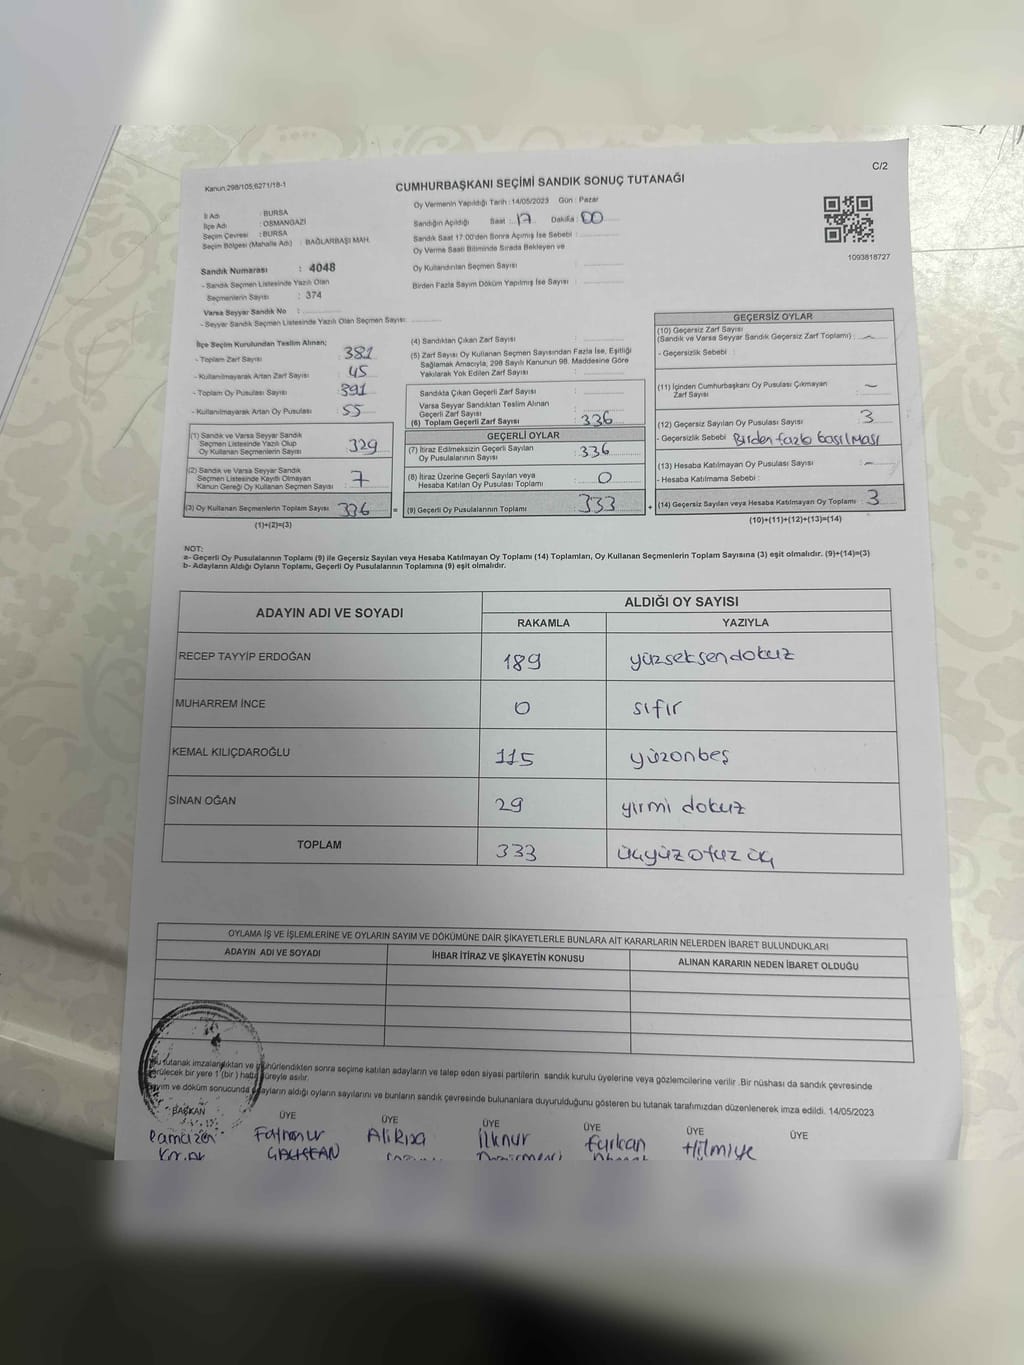 C/2
Kanun,298/105,6271/18-1
CUMHURBAŞKANI SEÇİMİ SANDIK SONUÇ TUTANAĞI
İl Adı : BURSA
İlçe Adı : OSMANGAZİ
Seçim Çevresi : BURSA
Seçim Bölgesi (Mahalle Adı) : BAĞLARBAŞI MAH.
Oy Vermenin Yapıldığı Tarih :14/05/2023 Gün : Pazar
Sandığın Açıldığı Saat : 17 Dakika : 00
Sandık Saat 17:00'den Sonra Açımış İse Sebebi :
Oy Verme Saati Bitiminde Sırada Bekleyen ve
Oy Kullandırılan Seçmen Sayısı :
Birden Fazla Sayım Döküm Yapılmış İse Sayısı :
1093818727
Sandık Numarası : 4048
- Sandık Seçmen Listesinde Yazılı Olan
Seçmenlerin Sayısı : 374
Varsa Seyyar Sandık No :
- Seyyar Sandık Seçmen Listesinde Yazılı Olan Seçmen Sayısı:
İlçe Seçim Kurulundan Teslim Alınan;
- Toplam Zarf Sayısı : 381
- Kullanılmayarak Artan Zarf Sayısı : 45
- Toplam Oy Pusulası Sayısı : 391
- Kullanılmayarak Artan Oy Pusulası : 55
(1) Sandık ve Varsa Seyyar Sandık
Seçmen Listesinde Yazılı Olup
Oy Kullanan Seçmenlerin Sayısı 329
(2) Sandık ve Varsa Seyyar Sandık
Seçmen Listesinde Kayıtlı Olmayan
Kanun Gereği Oy Kullanan Seçmen Sayısı 7
(3) Oy Kullanan Seçmenlerin Toplam Sayısı 336
(1)+(2)=(3)
(4) Sandıktan Çıkan Zarf Sayısı :
(5) Zarf Sayısı Oy Kullanan Seçmen Sayısından Fazla İse, Eşitliği
Sağlamak Amacıyla, 298 Sayılı Kanunun 98. Maddesine Göre
Yakılarak Yok Edilen Zarf Sayısı :
Sandıkta Çıkan Geçerli Zarf Sayısı :
Varsa Seyyar Sandıktan Teslim Alınan
Geçerli Zarf Sayısı :
(6) Toplam Geçerli Zarf Sayısı : 336
GEÇERLİ OYLAR
(7) İtiraz Edilmeksizin Geçerli Sayılan
Oy Pusulalarının Sayısı : 336
(8) İtiraz Üzerine Geçerli Sayılan veya
Hesaba Katılan Oy Pusulası Toplamı : 0
(9) Geçerli Oy Pusulalarının Toplamı : 333
GEÇERSİZ OYLAR
(10) Geçersiz Zarf Sayısı
(Sandık ve Varsa Seyyar Sandık Geçersiz Zarf Toplamı) : –
- Geçersizlik Sebebi :
(11) İçinden Cumhurbaşkanı Oy Pusulası Çıkmayan
Zarf Sayısı : –
(12) Geçersiz Sayılan Oy Pusulası Sayısı : 3
- Geçersizlik Sebebi : Birden fazla basılması
(13) Hesaba Katılmayan Oy Pusulası Sayısı : –
- Hesaba Katılmama Sebebi :
(14) Geçersiz Sayılan veya Hesaba Katılmayan Oy Toplamı : 3
(10)+(11)+(12)+(13)=(14)
NOT:
a- Geçerli Oy Pusulalarının Toplamı (9) ile Geçersiz Sayılan veya Hesaba Katılmayan Oy Toplamı (14) Toplamları, Oy Kullanan Seçmenlerin Toplam Sayısına (3) eşit olmalıdır. (9)+(14)=(3)
b- Adayların Aldığı Oyların Toplamı, Geçerli Oy Pusulalarının Toplamına (9) eşit olmalıdır.
ADAYIN ADI VE SOYADI ALDIĞI OY SAYISI
RAKAMLA YAZIYLA
RECEP TAYYİP ERDOĞAN 189 yüzseksendokuz
MUHARREM İNCE 0 sıfır
KEMAL KILIÇDAROĞLU 115 yüzonbeş
SİNAN OĞAN 29 yirmi dokuz
TOPLAM 333 üçyüz otuz üç
OYLAMA İŞ VE İŞLEMLERİNE VE OYLARIN SAYIM VE DÖKÜMÜNE DAİR ŞİKAYETLERLE BUNLARA AİT KARARLARIN NELERDEN İBARET BULUNDUKLARI
ADAYIN ADI VE SOYADI İHBAR İTİRAZ VE ŞİKAYETİN KONUSU ALINAN KARARIN NEDEN İBARET OLDUĞU
Bu tutanak imzalandıktan ve mühürlendikten sonra seçime katılan adayların ve talep eden siyasi partilerin sandık kurulu üyelerine veya gözlemcilerine verilir .Bir nüshası da sandık çevresinde
görülecek bir yere 1 (bir ) hafta süreyle asılır.
Sayım ve döküm sonucunda adayların aldığı oyların sayılarını ve bunların sandık çevresinde bulunanlara duyurulduğunu gösteren bu tutanak tarafımızdan düzenlenerek imza edildi. 14/05/2023
BAŞKAN ÜYE ÜYE ÜYE ÜYE ÜYE ÜYE
Ramazan Fatmanur Ali Rıza İlknur Furkan Hilmiye